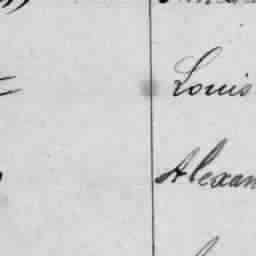 Louis
Alexan